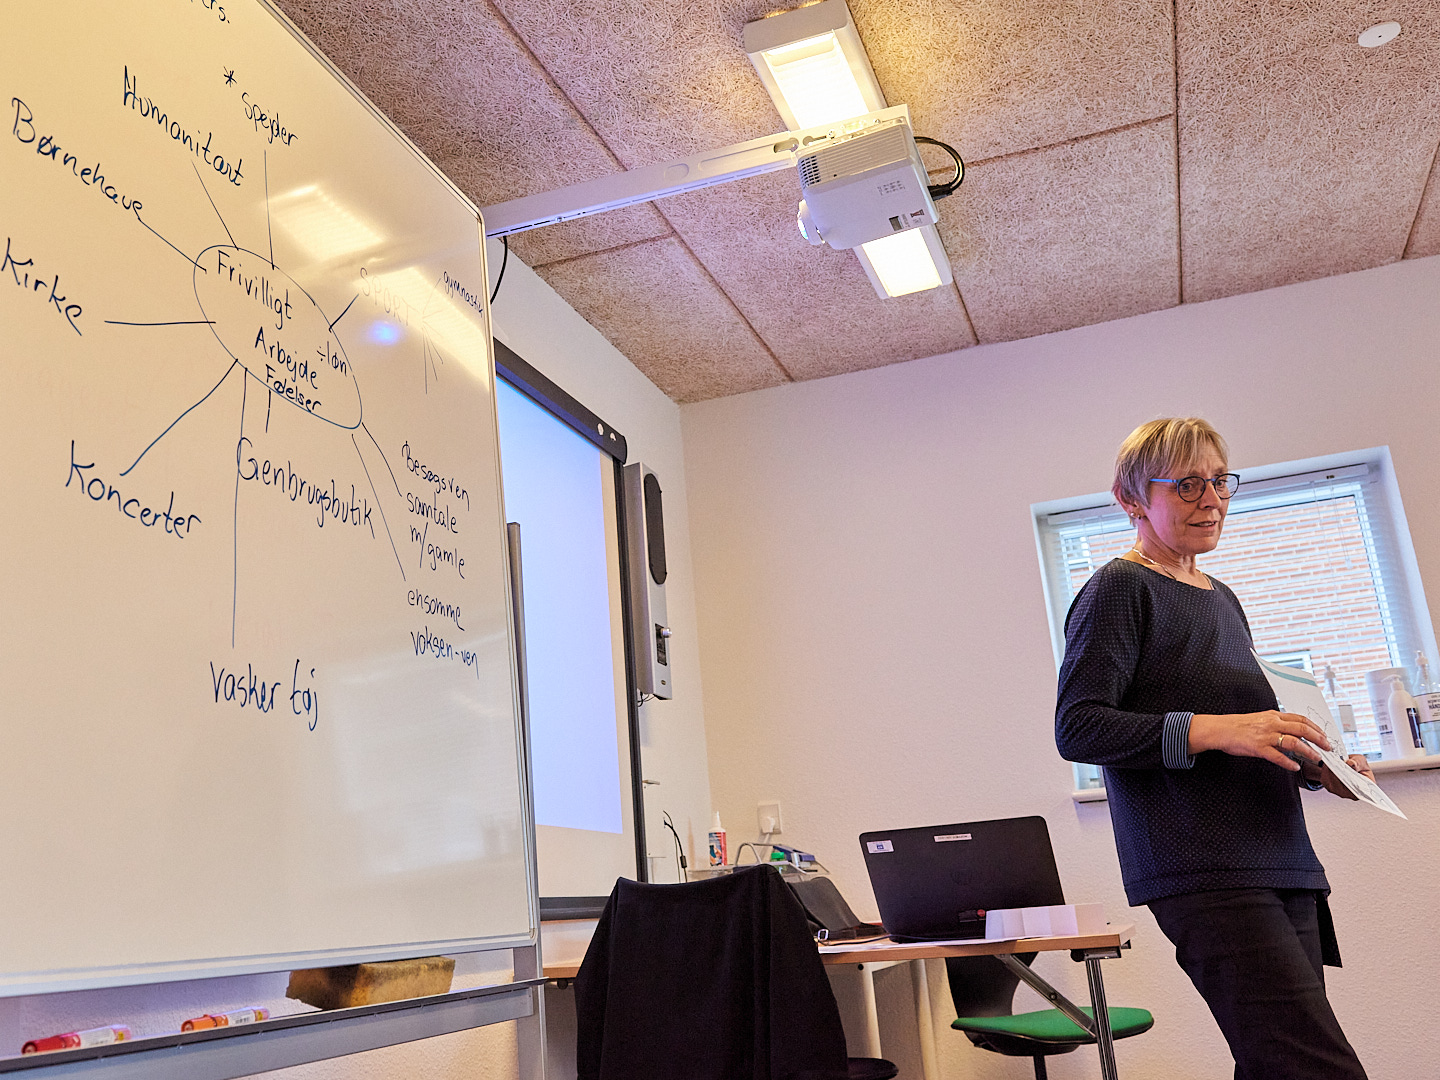 * spejder
Humanitart
Børnehave
Kirke
Frivilligt
Arbejde
÷løn
Følelser
SPORT
gymnastik
Koncerter
Genbrugsbutik
Besøgsven
samtale
m/gamle
ensomme
voksen-ven
vasker tøj